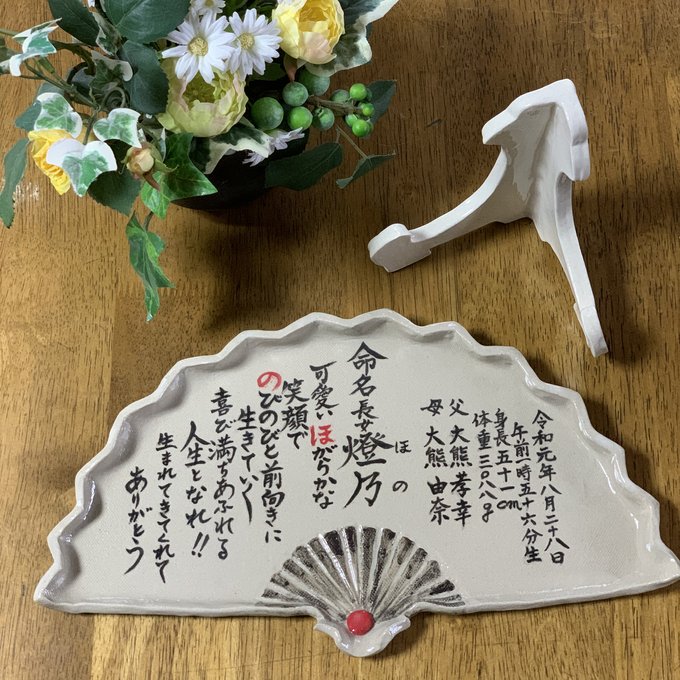 令和元年八月二十八日
午前一時五十六分生
身長五十一cm
体重三〇八八g
父 大熊孝幸
母 大熊由奈
ほの
命名長女燈乃
可愛いほがらかな
笑顔で
のびのびと前向きに
生きていく
喜び満ちあふれる
人生となれ!!
生まれてきてくれて
ありがとう